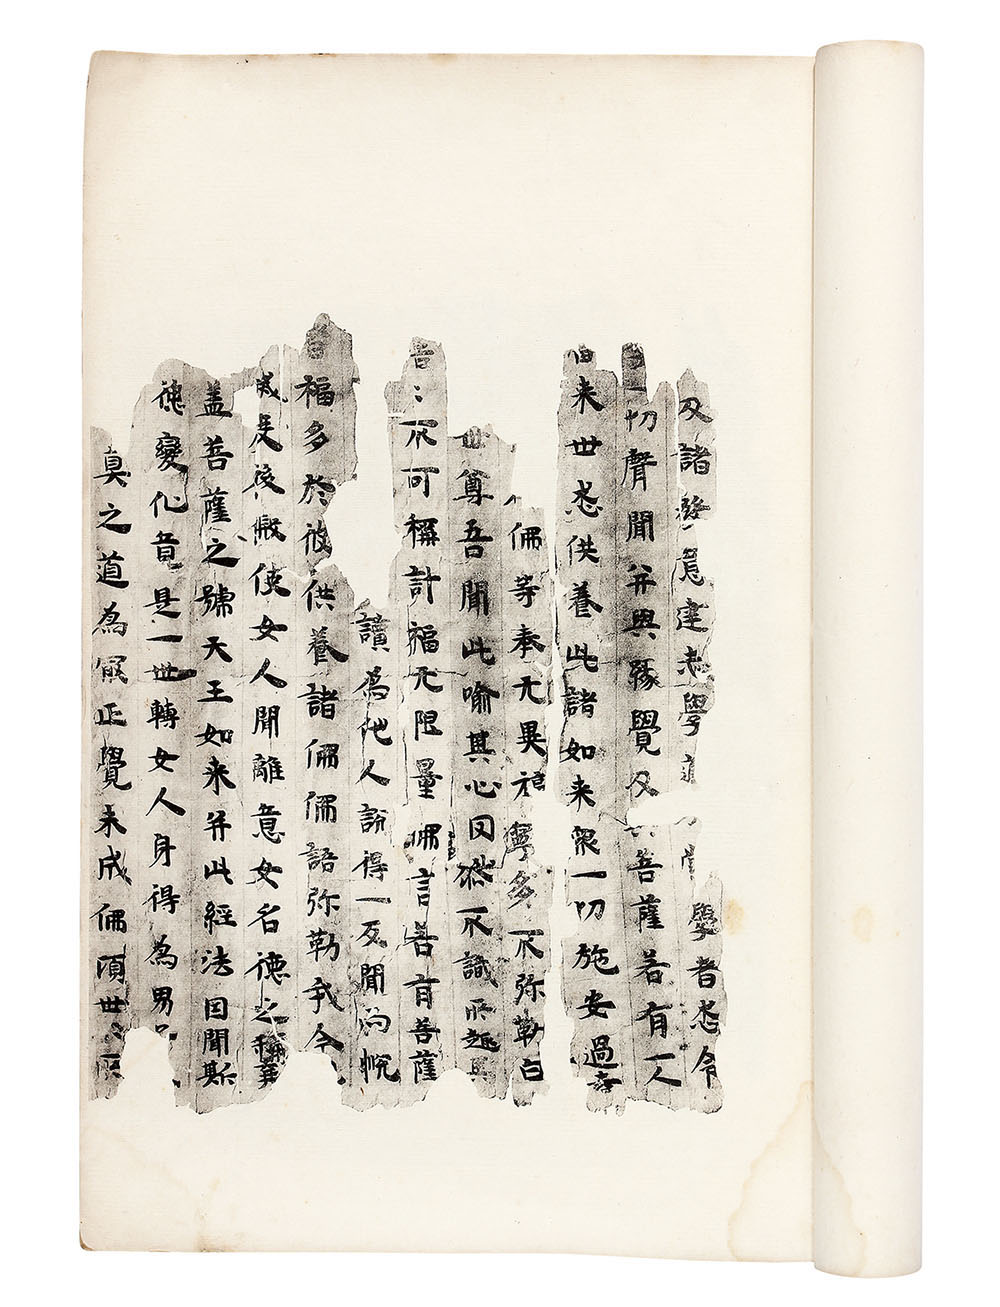 及諸發意建志學道 學者悉令
一切聲聞并與緣覺及 菩薩若有一人
来世悉供養此諸如来眾一切施安過
佛等奉无異福寧多不弥勒白
世尊吾聞此喻其心曰然不識所趣
告〻不可稱計福无限量佛言若有菩薩
讀為他人說得一反聞尚悅
福多於彼供養諸佛佛語弥勒我今
歲是後假使女人聞離意女名德之稱
盖菩薩之號天王如来并此經法因聞斯
德變化竟是一世轉女人身得為男
真之道為寂正覺未成佛頃世〻